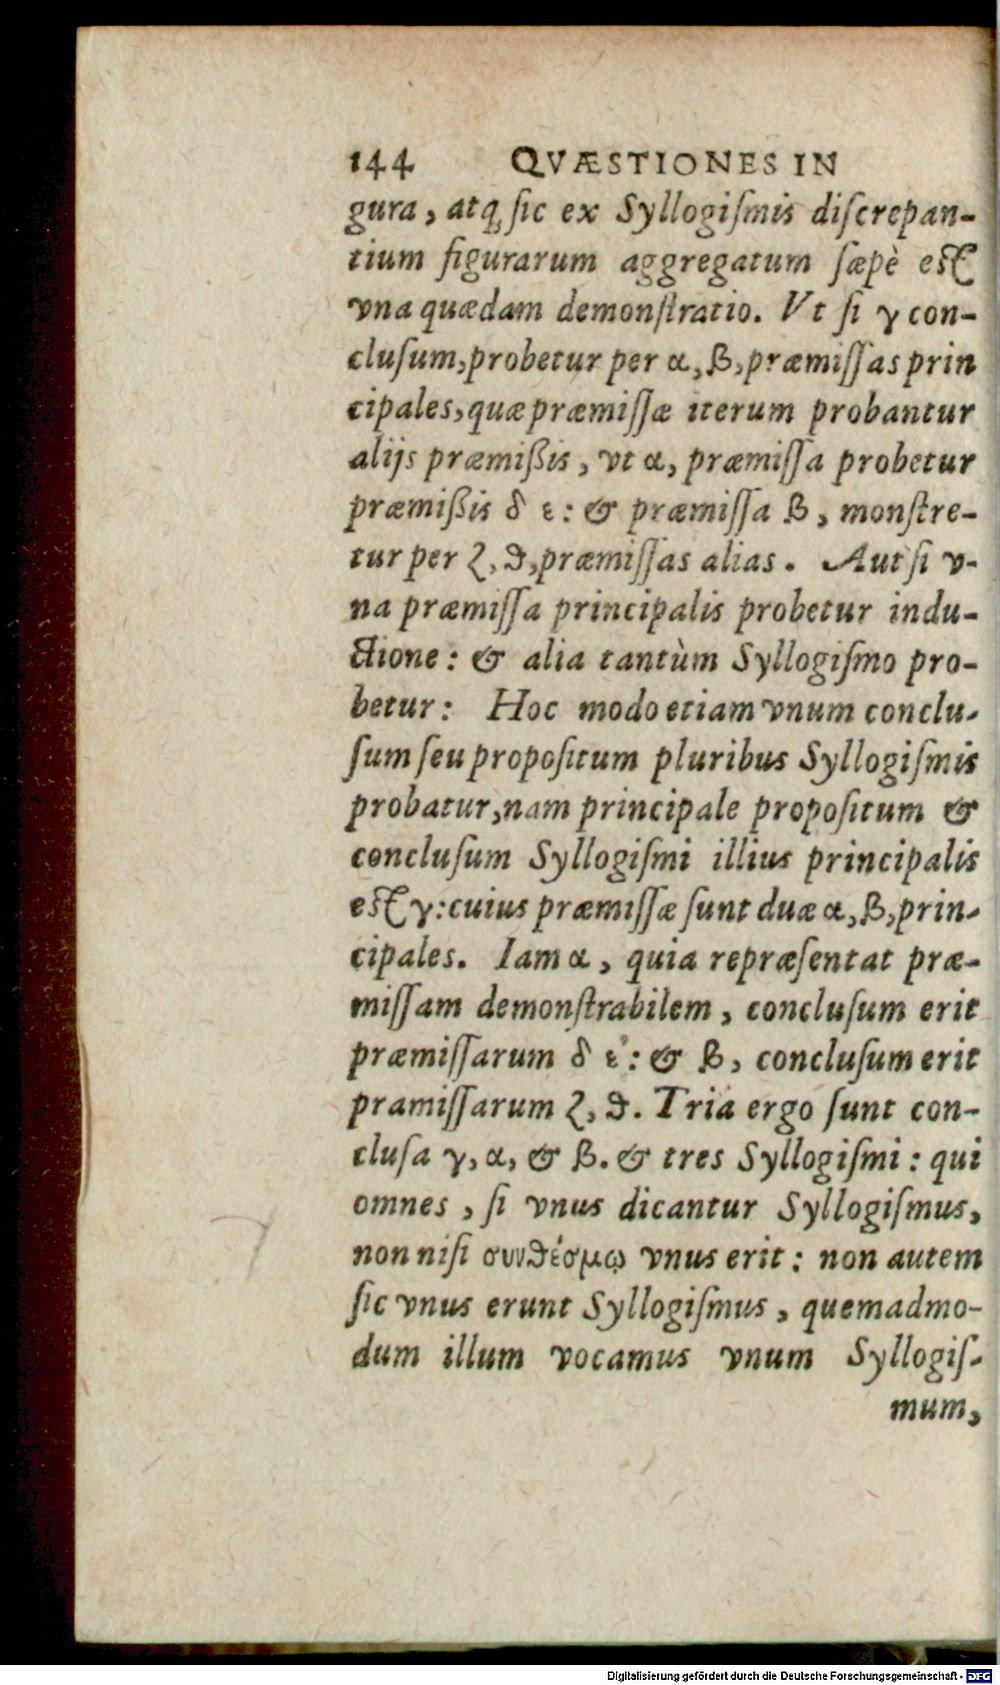 144 QVÆSTIONES IN
gura, atq́; ſic ex Syllogiſmis diſcrepan-
tium figurarum aggregatum ſæpè eſt
vna quædam demonſtratio. Vt ſi γ con-
cluſum, probetur per α, β, præmiſſas prin
cipales, quæ præmiſſæ iterum probantur
alijs præmißis, vt α, præmiſſa probetur
præmißis δ ε: & præmiſſa β, monſtre-
tur per ζ, ϑ, præmiſſas alias. Aut ſi v-
na præmiſſa principalis probetur indu-
ctione: & alia tantùm Syllogiſmo pro-
betur: Hoc modo etiam vnum conclu-
ſum ſeu propoſitum pluribus Syllogiſmis
probatur, nam principale propoſitum &
concluſum Syllogiſmi illius principalis
eſt γ: cuius præmiſſæ ſunt duæ α, β, prin-
cipales. Iam α, quia repræſentat præ-
miſſam demonſtrabilem, concluſum erit
præmiſſarum δ ε: & β, concluſum erit
pramiſſarum ζ, ϑ. Tria ergo ſunt con-
cluſa γ, α, & β. & tres Syllogiſmi: qui
omnes, ſi vnus dicantur Syllogiſmus,
non niſi συνϑέσμῳ vnus erit: non autem
ſic vnus erunt Syllogiſmus, quemadmo-
dum illum vocamus vnum Syllogiſ-
mum,
Digitalisierung gefördert durch die Deutsche Forschungsgemeinschaft - DFG